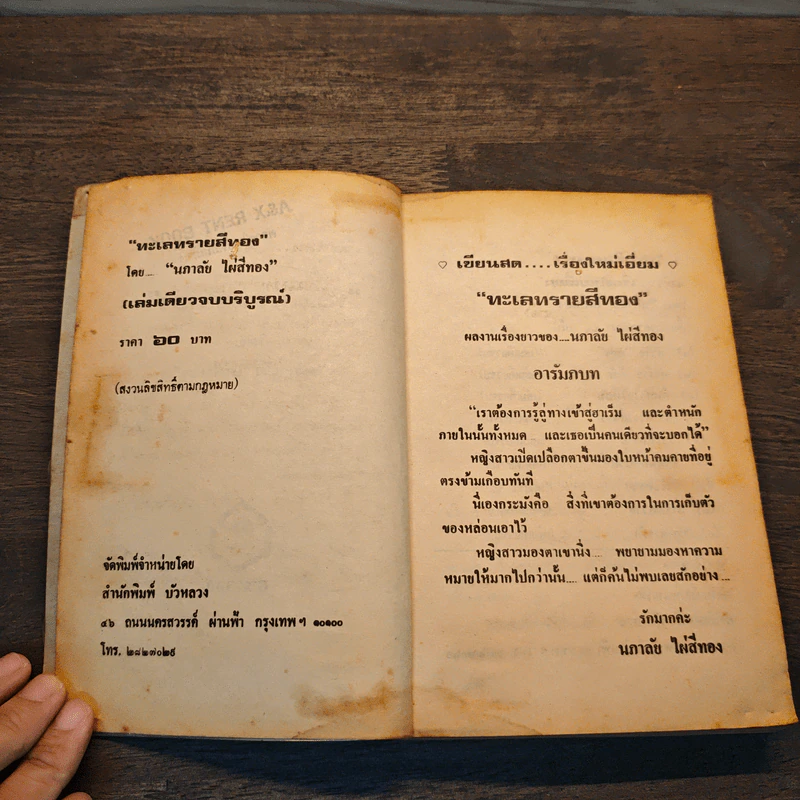 "ทะเลทรายสีทอง"
โดย.... "นภาลัย ไผ่สีทอง"
(เล่มเดียวจบบริบูรณ์)
ราคา ๖๐ บาท
(สงวนลิขสิทธิ์ตามกฎหมาย)
จัดพิมพ์จำหน่ายโดย
สำนักพิมพ์ บัวหลวง
๔๖ ถนนนครสวรรค์ ผ่านฟ้า กรุงเทพฯ ๑๐๑๐๐
โทร. ๒๘๒๗๐๒๙
♡ เขียนสด....เรื่องใหม่เอี่ยม ♡
"ทะเลทรายสีทอง"
ผลงานเรื่องยาวของ....นภาลัย ไผ่สีทอง
อารัมภบท
"เราต้องการรู้ลู่ทางเข้าสู่ฮาเร็ม และตำหนัก
ภายในนั้นทั้งหมด... และเธอเป็นคนเดียวที่จะบอกได้"
หญิงสาวเปิดเปลือกตาขึ้นมองใบหน้าคมคายที่อยู่
ตรงข้ามเกือบทันที
นี่เองกระมังคือ สิ่งที่เขาต้องการในการเก็บตัว
ของหล่อนเอาไว้
หญิงสาวมองตาเขานิ่ง.... พยายามมองหาความ
หมายให้มากไปกว่านั้น.... แต่ก็ค้นไม่พบเลยสักอย่าง...
รักมากค่ะ
นภาลัย ไผ่สีทอง